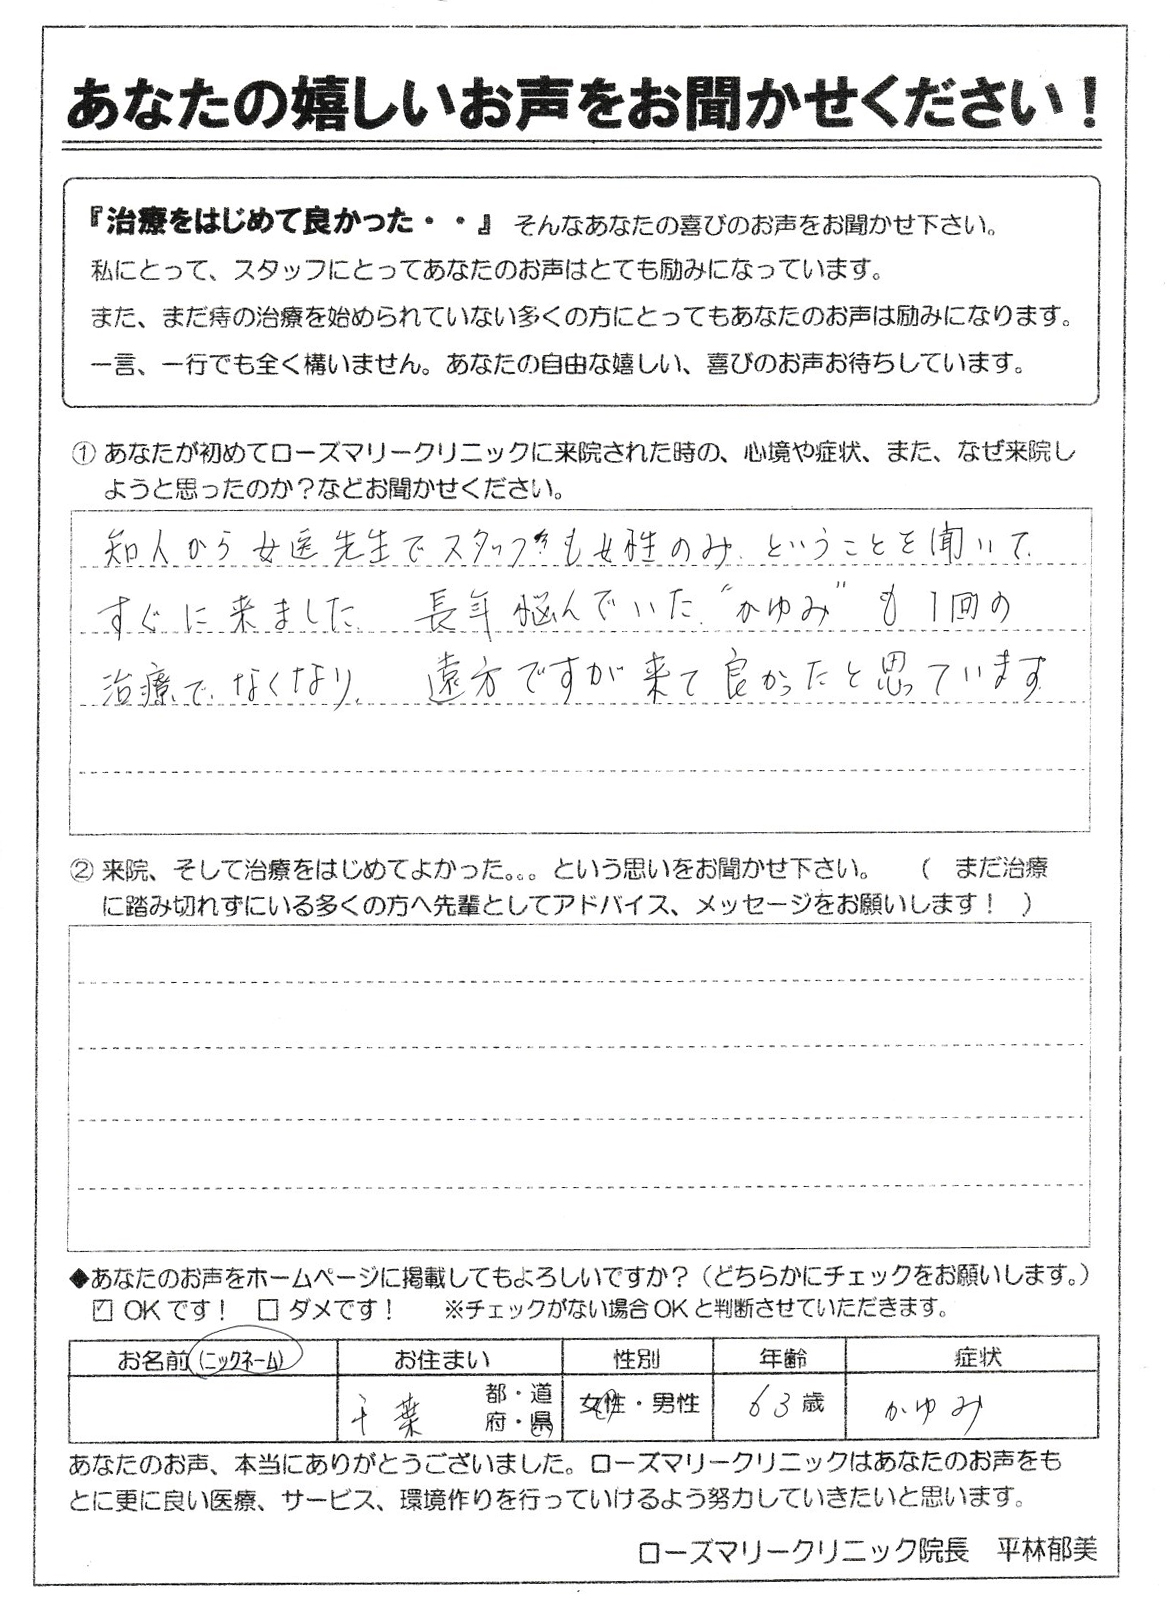 あなたの嬉しいお声をお聞かせください！
『治療をはじめて良かった・・』 そんなあなたの喜びのお声をお聞かせ下さい。
私にとって、スタッフにとってあなたのお声はとても励みになっています。
また、まだ痔の治療を始められていない多くの方にとってもあなたのお声は励みになります。
一言、一行でも全く構いません。あなたの自由な嬉しい、喜びのお声お待ちしています。
① あなたが初めてローズマリークリニックに来院された時の、心境や症状、また、なぜ来院し
ようと思ったのか？などお聞かせください。
知人から女医先生でスタッフも女性のみ、ということを聞いて
すぐに来ました 長年悩んでいた“かゆみ”も1回の
治療でなくなり、 遠方ですが来て良かったと思っています
② 来院、そして治療をはじめてよかった。。。という思いをお聞かせ下さい。 （ まだ治療
に踏み切れずにいる多くの方へ先輩としてアドバイス、メッセージをお願いします！ ）
◆あなたのお声をホームページに掲載してもよろしいですか？（どちらかにチェックをお願いします。）
☑ OKです！ □ ダメです！ ※チェックがない場合OKと判断させていただきます。
お名前（ニックネーム） お住まい 性別 年齢 症状
千葉 都・道 府・県 女性・男性 63歳 かゆみ
あなたのお声、本当にありがとうございました。ローズマリークリニックはあなたのお声をも
とに更に良い医療、サービス、環境作りを行っていけるよう努力していきたいと思います。
ローズマリークリニック院長 平林郁美